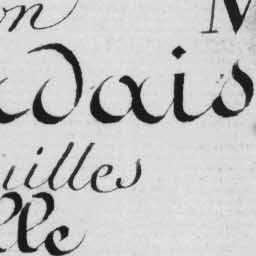 on M
dais
uilles
lle